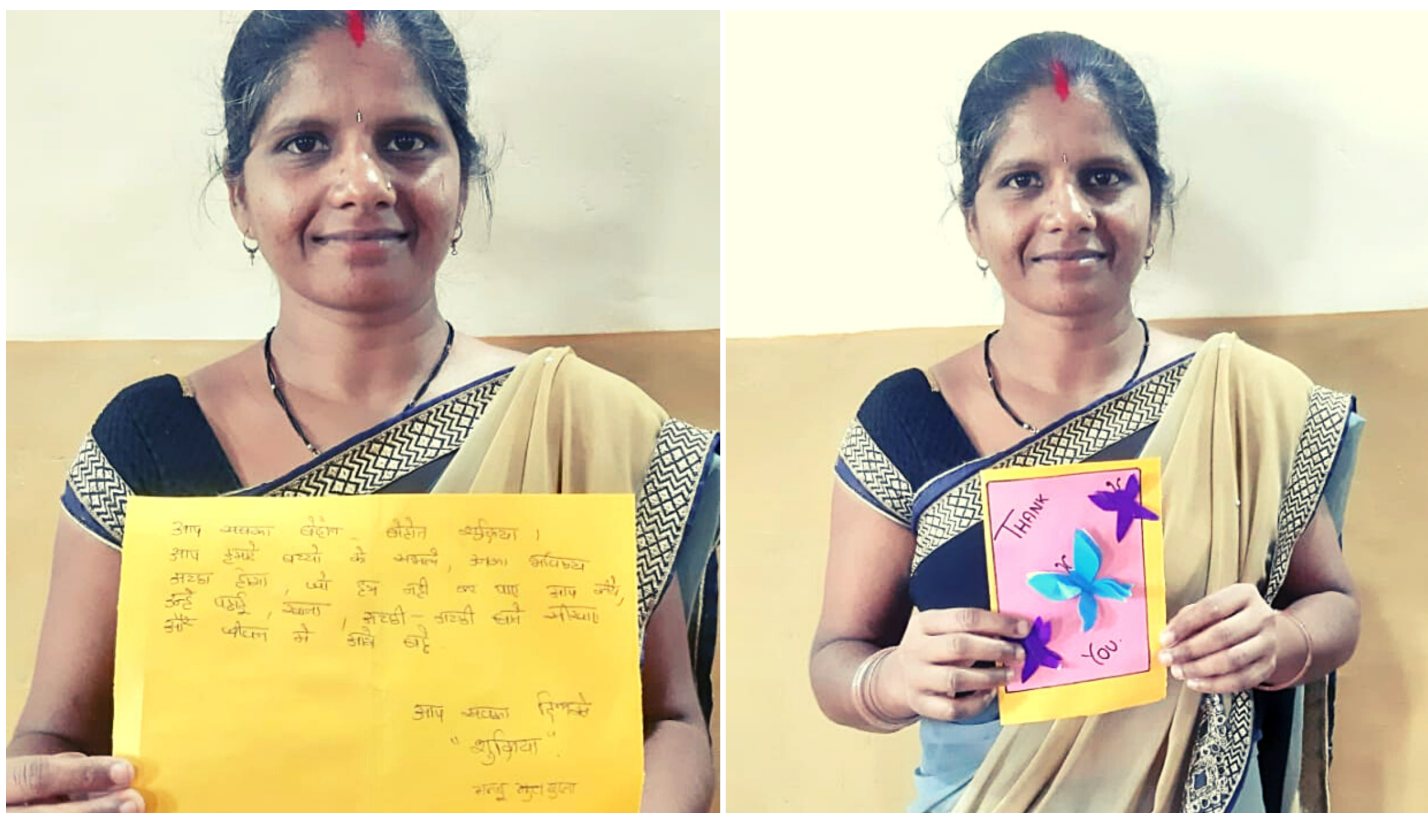 आप सबका बोहोत - बोहोत शुक्रिया ।
आप हमारे बच्चो के सभंले, उनका भविष्य
अच्छा होगा, जो हम नही कर पाए आप करे,
उन्हे पढाई, खाना, अच्छी - अच्छी बाते सीखाए
और जीवन मे आगे बढे.
आप सबका दिलसे
"शुक्रिया".
THANK
YOU.